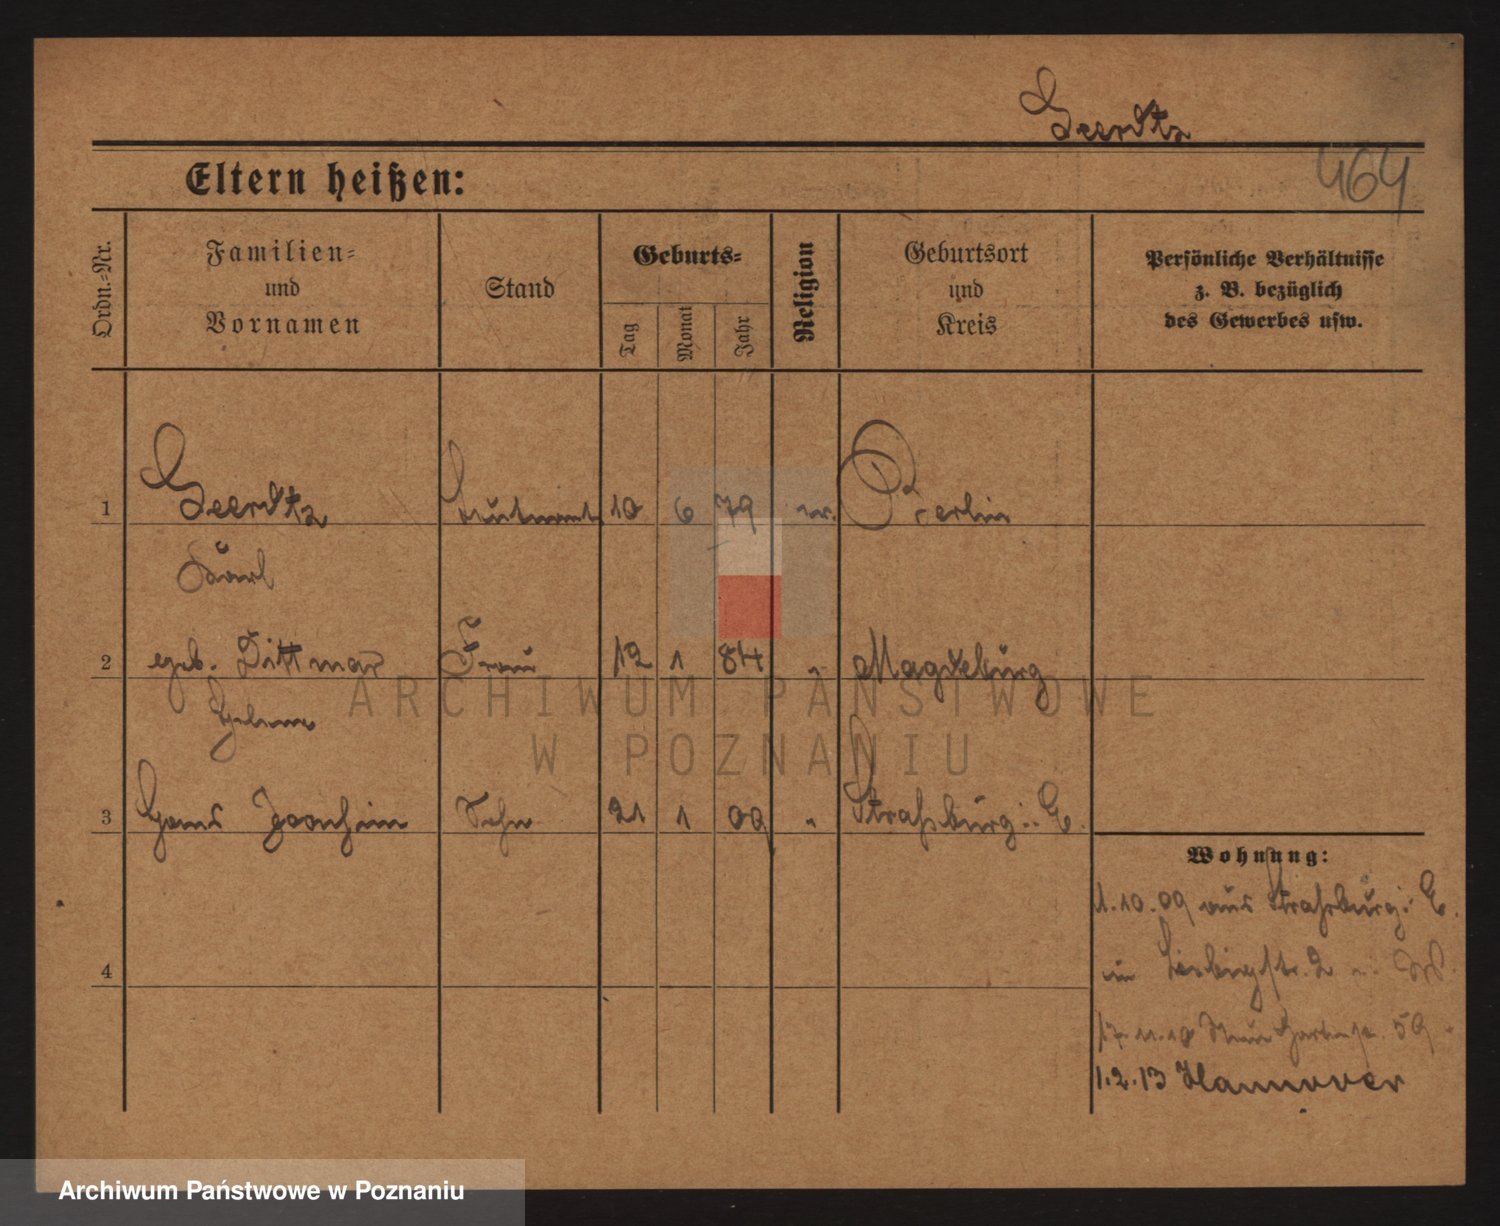 Geerdtz
464
Eltern heißen:
Ordn.-Nr.
Familien- und Vornamen
Stand
Geburts-
Tag
Monat
Jahr
Religion
Geburtsort und Kreis
Persönliche Verhältnisse z. B. bezüglich des Gewerbes usw.
1 Geerdtz Leutnant 10 6 79 ev. Berlin
Karl
2 geb. Dittmar Frau 12 1 84 " Magdeburg
3 Hans Joachim Sohn 21 1 09 " Straßburg i. E.
Wohnung:
1.10.09 aus Straßburg i. E.
in Liebigstr. 2
4
17.11.10 Neue Gartenstr. 59
1.2.13 Hannover
ARCHIWUM PAŃSTWOWE
W POZNANIU
Archiwum Państwowe w Poznaniu